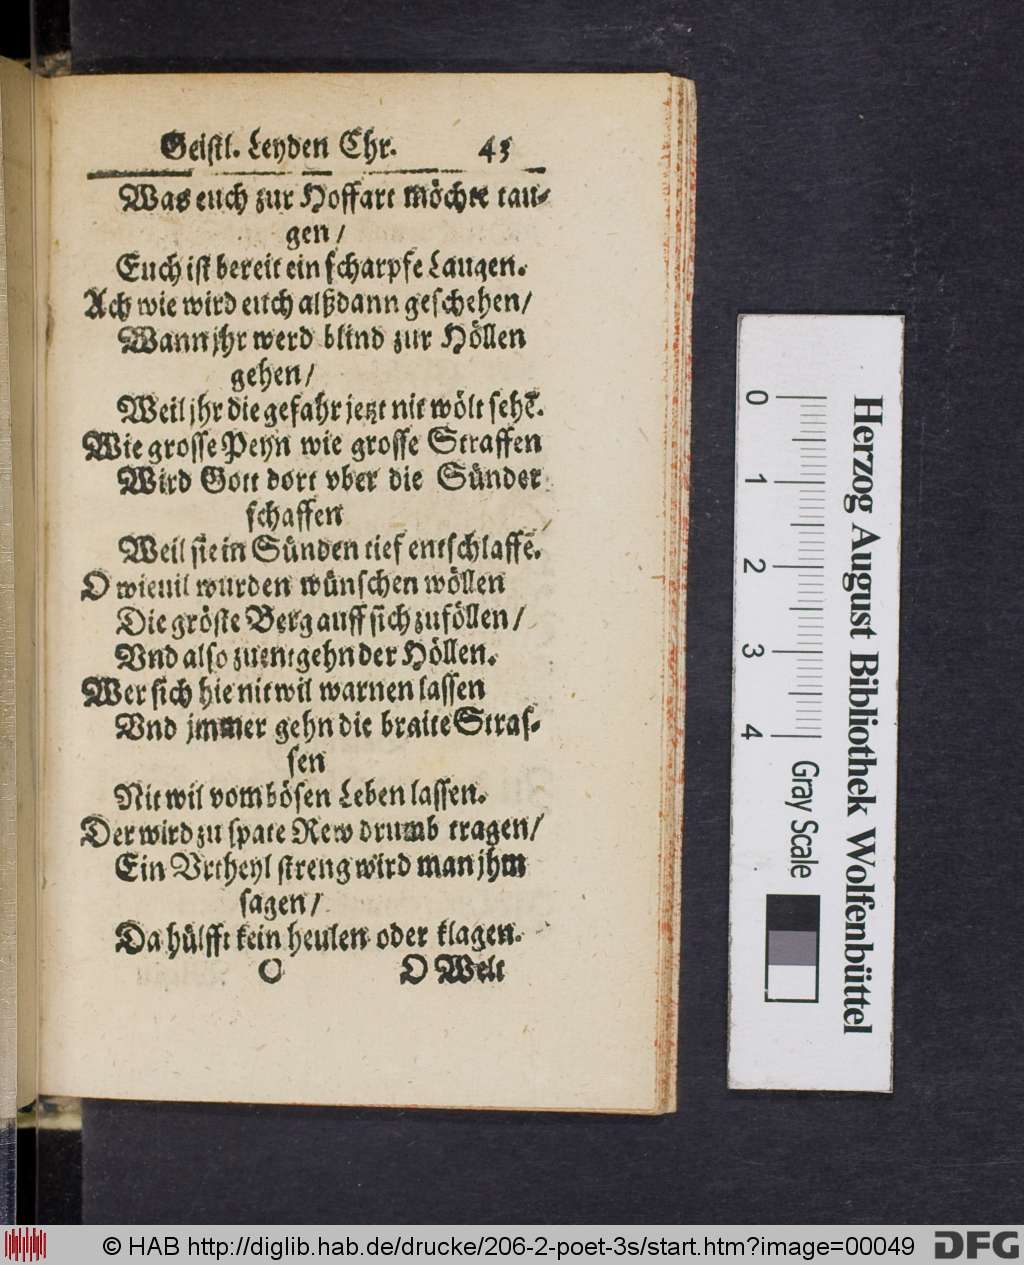 Geistl. Leyden Chr. 45
Was euch zur Hoffart möchte tau-
gen /
Euch ist bereit ein scharpfe Laugen.
Ach wie wird euch alßdann geschehen /
Wann jhr werd blind zur Höllen
gehen /
Weil jhr die gefahr jetzt nit wölt sehẽ.
Wie grosse Peyn wie grosse Straffen
Wird Gott dort vber die Sünder
schaffen
Weil sie in Sünden tief entschlaffẽ.
O wieuil wurden wünschen wöllen
Die gröste Berg auff sich zuföllen /
Vnd also zuentgehn der Höllen.
Wer sich hie nit wil warnen lassen
Vnd jmmer gehn die braite Stras-
sen
Nit wil vom bösen Leben lassen.
Der wird zu spate Rew drumb tragen /
Ein Vrtheyl streng wird man jhm
sagen /
Da hülfft kein heulen oder klagen.
O O Welt
0 1 2 3 4
Gray Scale
Herzog August Bibliothek Wolfenbüttel
© HAB http://diglib.hab.de/drucke/206-2-poet-3s/start.htm?image=00049
DFG